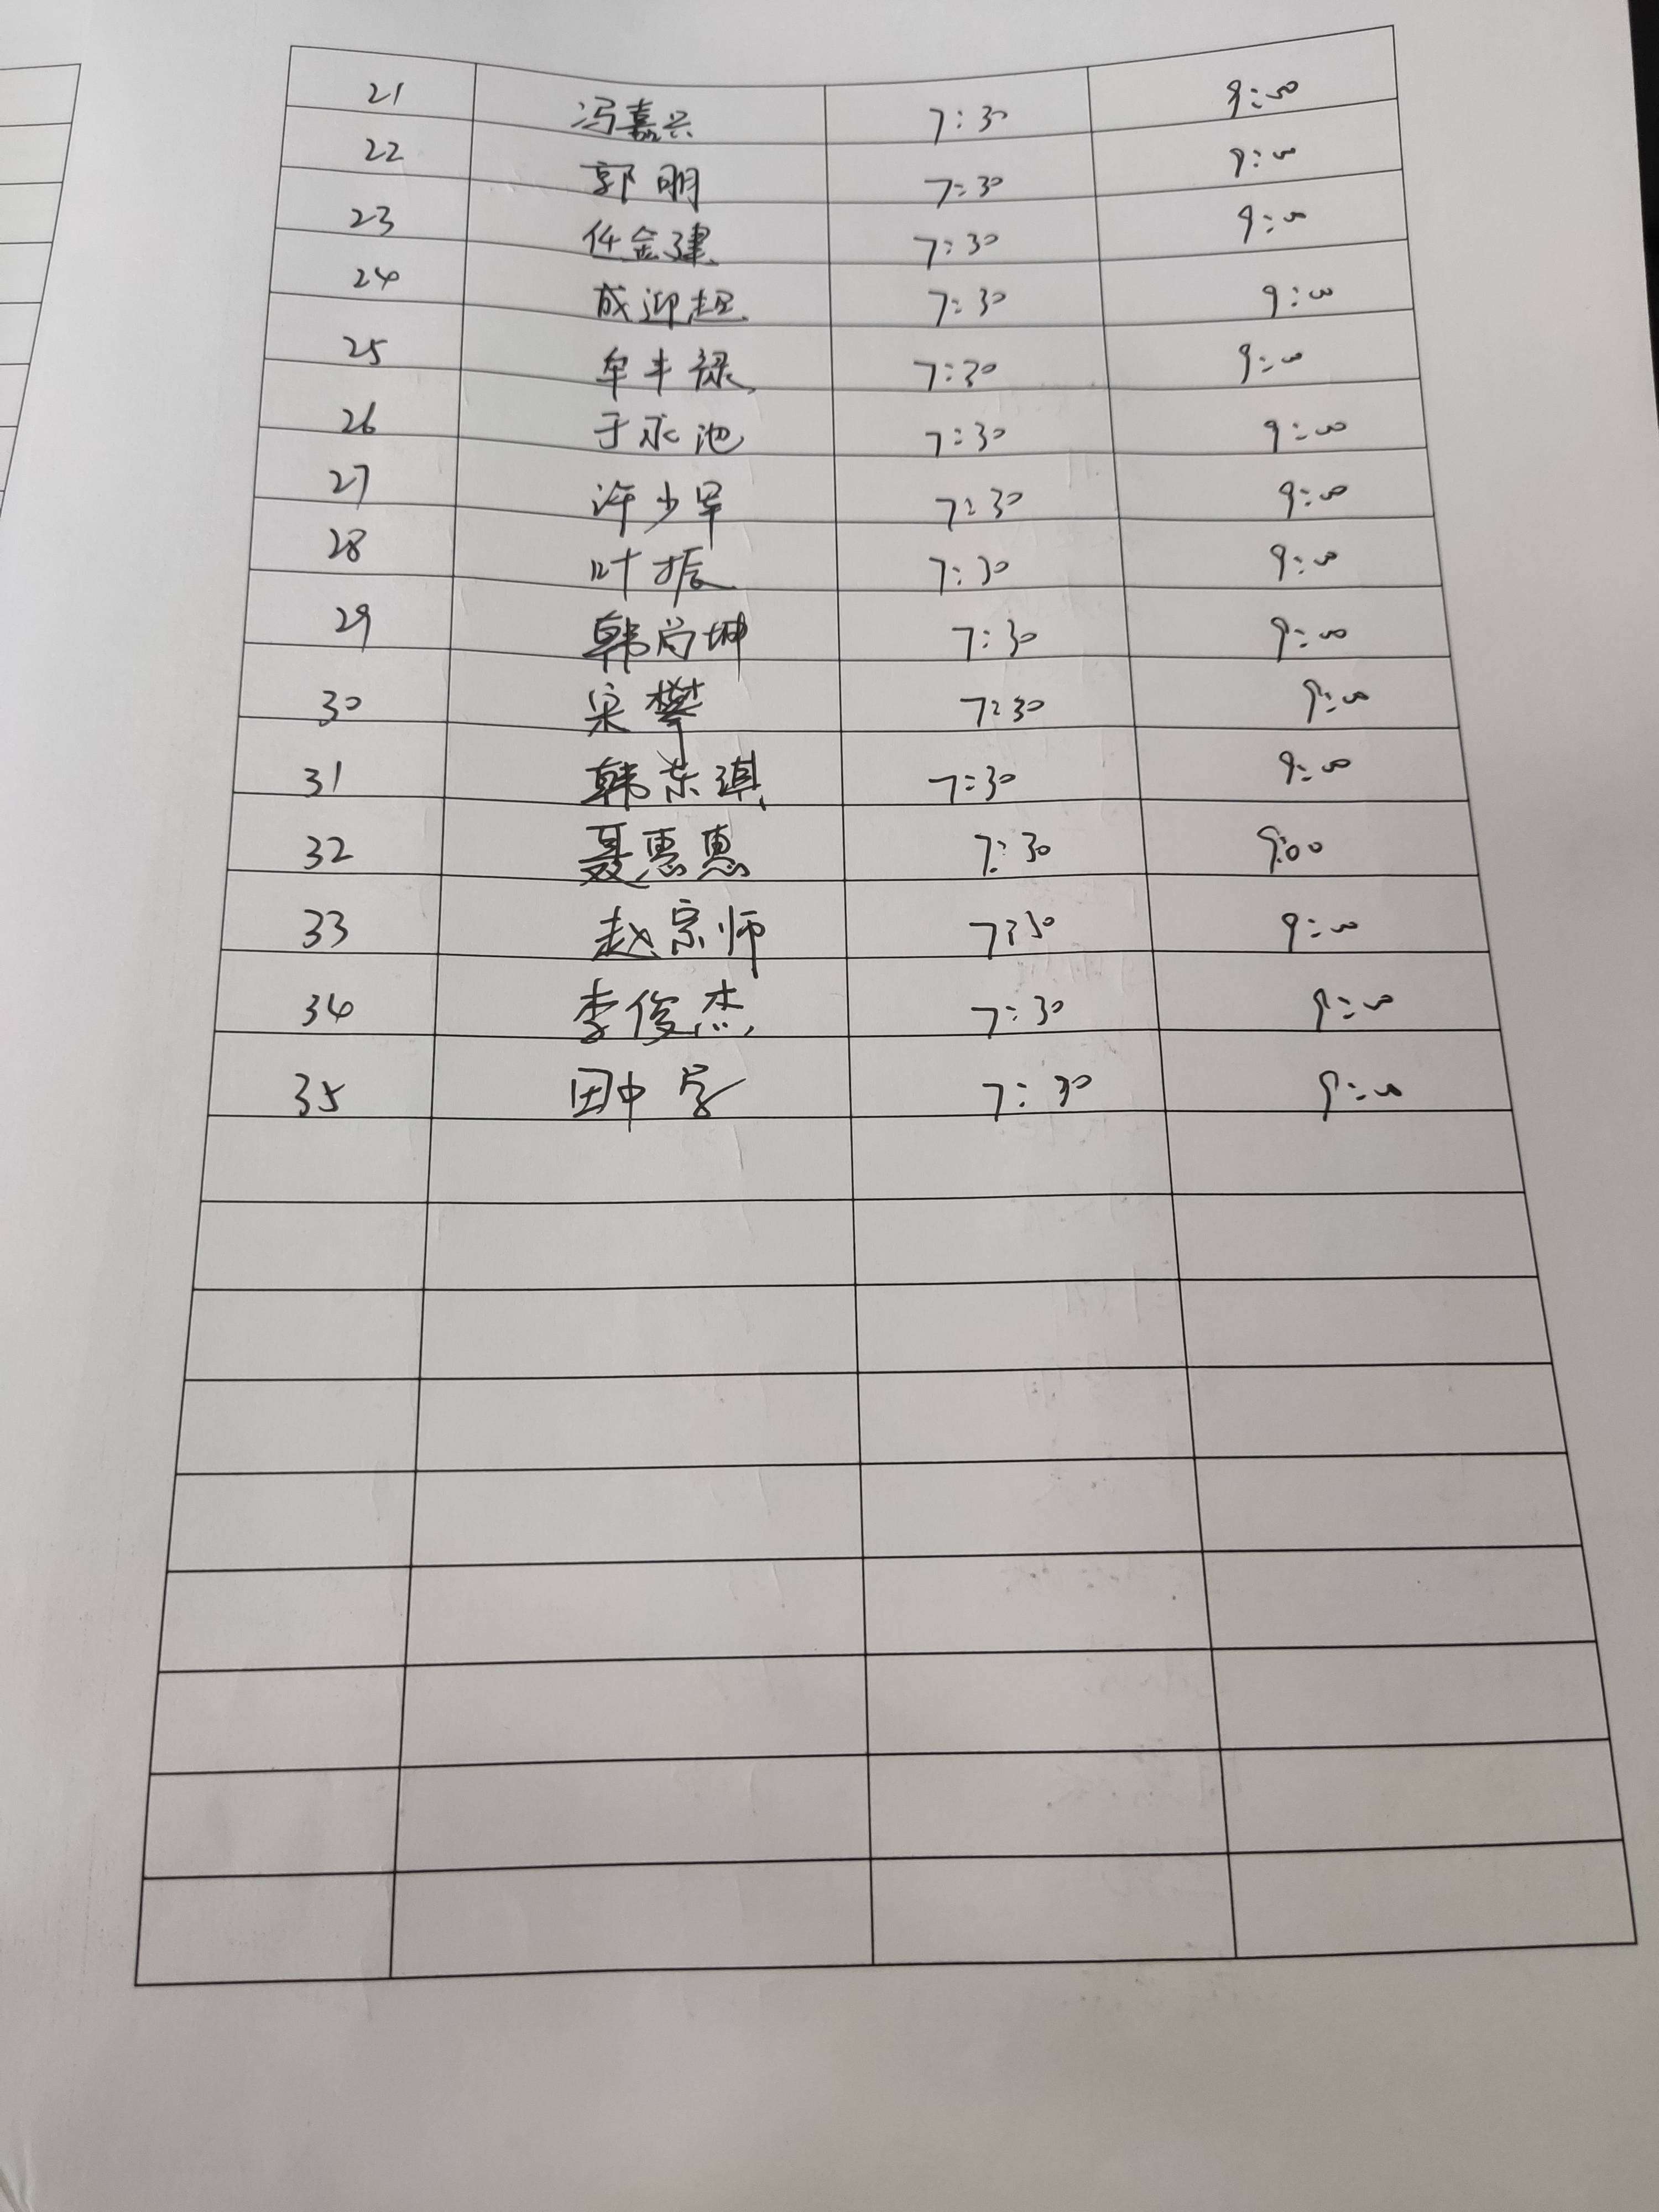 21 冯嘉兴 7:30 9:00
22 郭明 7:30 9:00
23 任金建 7:30 9:00
24 成迎超 7:30 9:00
25 牟丰禄 7:30 9:00
26 于永池 7:30 9:00
27 许少军 7:30 9:00
28 叶振 7:30 9:00
29 韩尚坤 7:30 9:00
30 宋攀 7:30 9:00
31 韩东琪 7:30 9:00
32 聂惠惠 7:30 9:00
33 赵宗师 7:30 9:00
34 李俊杰 7:30 9:00
35 田中 7:30 9:00